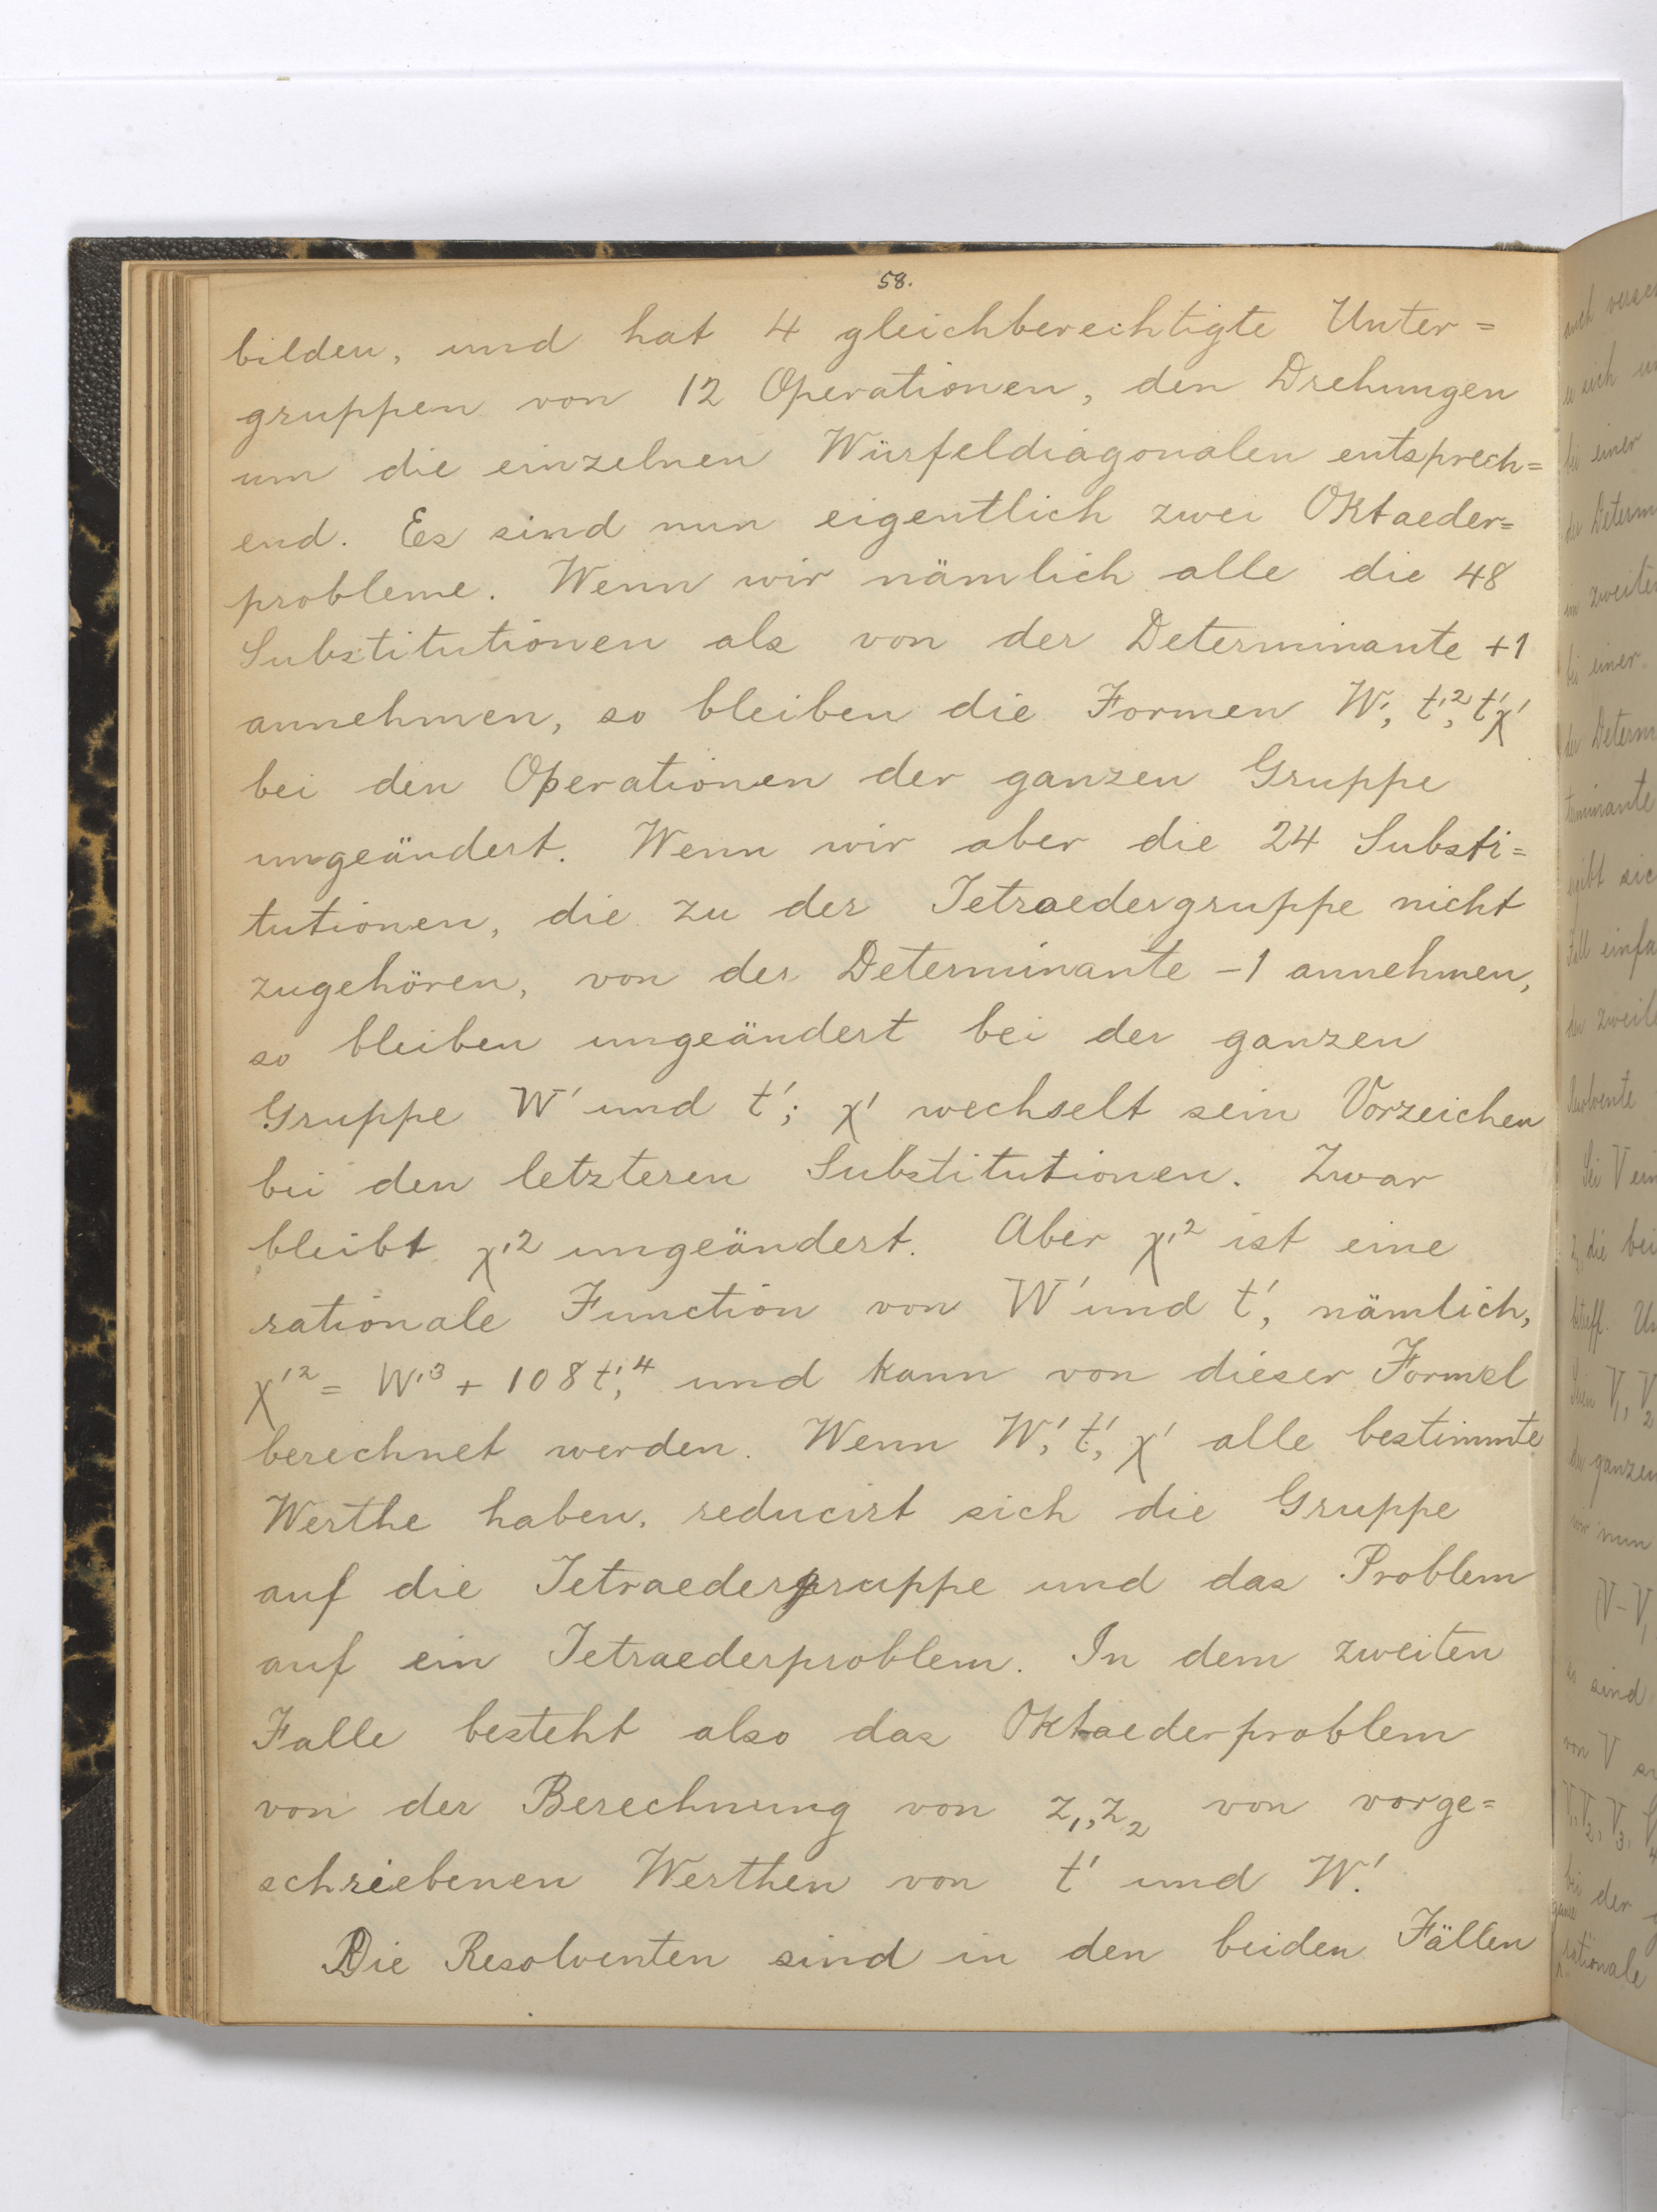 58.
bilden, und hat 4 gleichberechtigte Unter=
gruppen von 12 Operationen, den Drehungen
um die einzelnen Würfeldiagonalen entsprech=
end. Es sind nun eigentlich zwei Oktaeder=
probleme. Wenn wir nämlich alle die 48
Substitutionen als von der Determinante +1
annehmen, so bleiben die Formen W', t'², t'χ'
bei den Operationen der ganzen Gruppe
ungeändert. Wenn wir aber die 24 Substi=
tutionen, die zu der Tetraedergruppe nicht
zugehören, von der Determinante -1 annehmen,
so bleiben ungeändert bei der ganzen
Gruppe W' und t'; χ' wechselt sein Vorzeichen
bei den letzteren Substitutionen. Zwar
bleibt χ'² ungeändert. Aber χ'² ist eine
rationale Function von W' und t', nämlich,
χ'² = W'³ + 108 t'⁴, und kann von dieser Formel
berechnet werden. Wenn W', t', χ' alle bestimmte
Werthe haben, reducirt sich die Gruppe
auf die Tetraedergruppe und das Problem
auf ein Tetraederproblem. In dem zweiten
Falle besteht also das Oktaederproblem
von der Berechnung von z₁, z₂ von vorge=
schriebenen Werthen von t' und W'.
Die Resolventen sind in den beiden Fällen
auch
bei einer
bei einer
minante
Resolvente
Sei V
z, die bei
V₁, V₂
der ganzen
wir nun
(V-V₁
so sind
von V
V₁, V₂, V₃,
bei der
ganze
rationale